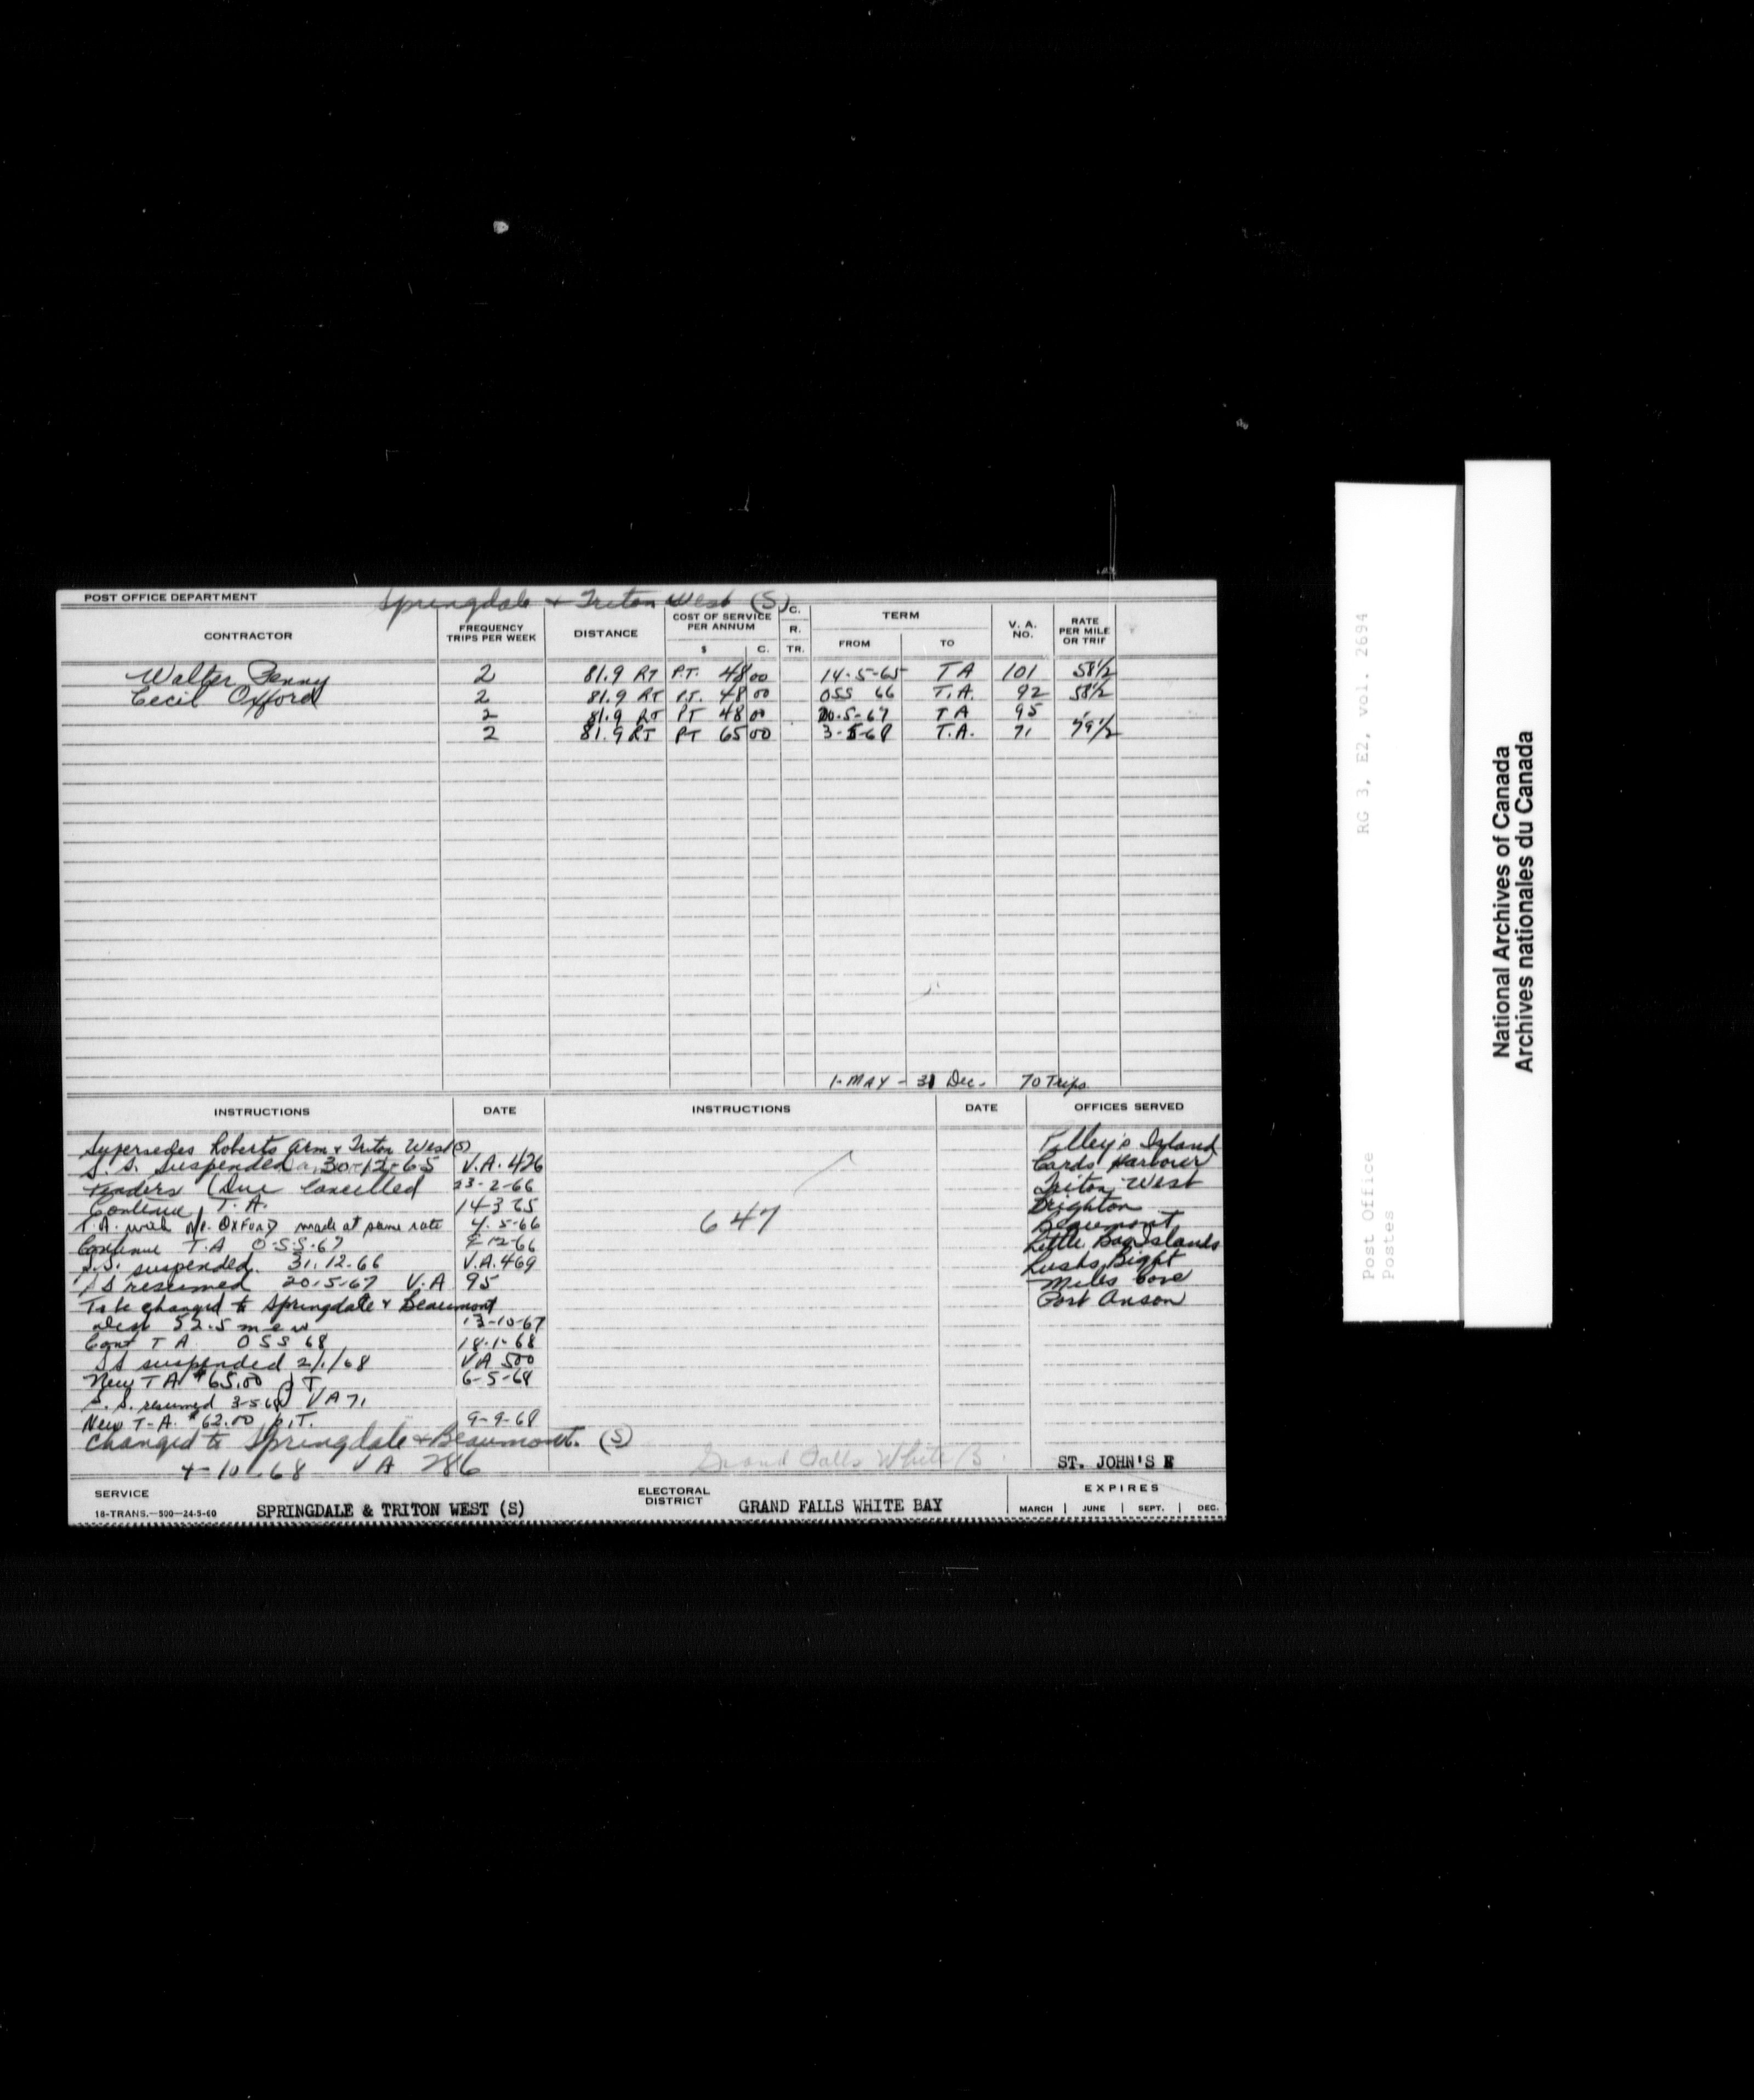 POST OFFICE DEPARTMENT
Springdale & Triton West (S)
CONTRACTOR FREQUENCY TRIPS PER WEEK DISTANCE COST OF SERVICE PER ANNUM $ C. C. R. TR. TERM FROM TO V. A. NO. RATE PER MILE OR TRIP
Walter Penny 2 81.9 RT P.T. 48 00 14-5-65 TA 101 58 1/2
Cecil Oxford 2 81.9 RT P.T. 48 00 OSS 66 T.A. 92 58 1/2
2 81.9 RT PT 48 00 20-5-67 TA 95
2 81.9 RT PT 65 00 3-5-68 T.A. 71 79 1/2
1-MAY - 31 Dec. 70 Trips
INSTRUCTIONS DATE INSTRUCTIONS DATE OFFICES SERVED
Supersedes Roberts Arm & Triton West (S)
S.S. suspended 30-12-65 V.A. 426
Tenders Due Cancelled 23-2-66
Continue T.A.
T.A. with OXFORD made at same rate 4.5-66
Continue T.A O.S.S.67
S.S. suspended. 31.12.66 V.A. 469
SS resumed 20.5.67 V.A 95
To be changed to Springdale & Beaumont
Dist 52.5 m e w 13-10-67
Cont T A OSS 68 18-1-68
SS suspended 2/1/68 VA 500
New TA $65.00 PT 6-5-68
S.S. resumed 3-5-68 VA 71
New T-A. $62.00 p.T. 9-9-68
Changed to Springdale & Beaumont. (S)
4-10-68 VA 286
647
Grand Falls White B
Pilley's Island
Cards Harbour
Triton West
Brighton
Beaumont
Little Bay Islands
Lushs Bight
Miles Cove
Port Anson
ST. JOHN'S E
SERVICE
18-TRANS.—500—24-5-60
SPRINGDALE & TRITON WEST (S)
ELECTORAL DISTRICT
GRAND FALLS WHITE BAY
EXPIRES
MARCH JUNE SEPT. DEC.
RG 3, E2, vol. 2694
Post Office
Postes
National Archives of Canada
Archives nationales du Canada